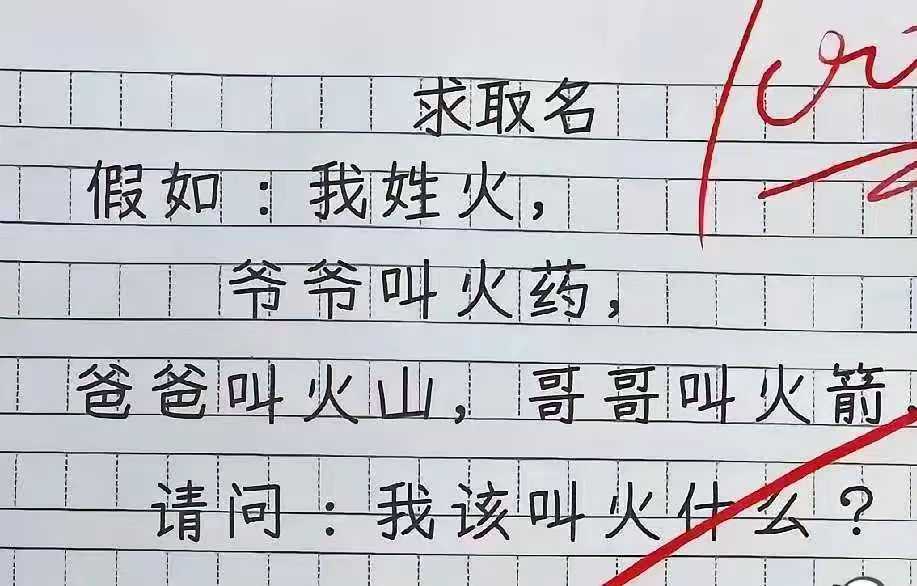 求取名
假如：我姓火，
爷爷叫火药，
爸爸叫火山，哥哥叫火箭，
请问：我该叫火什么？